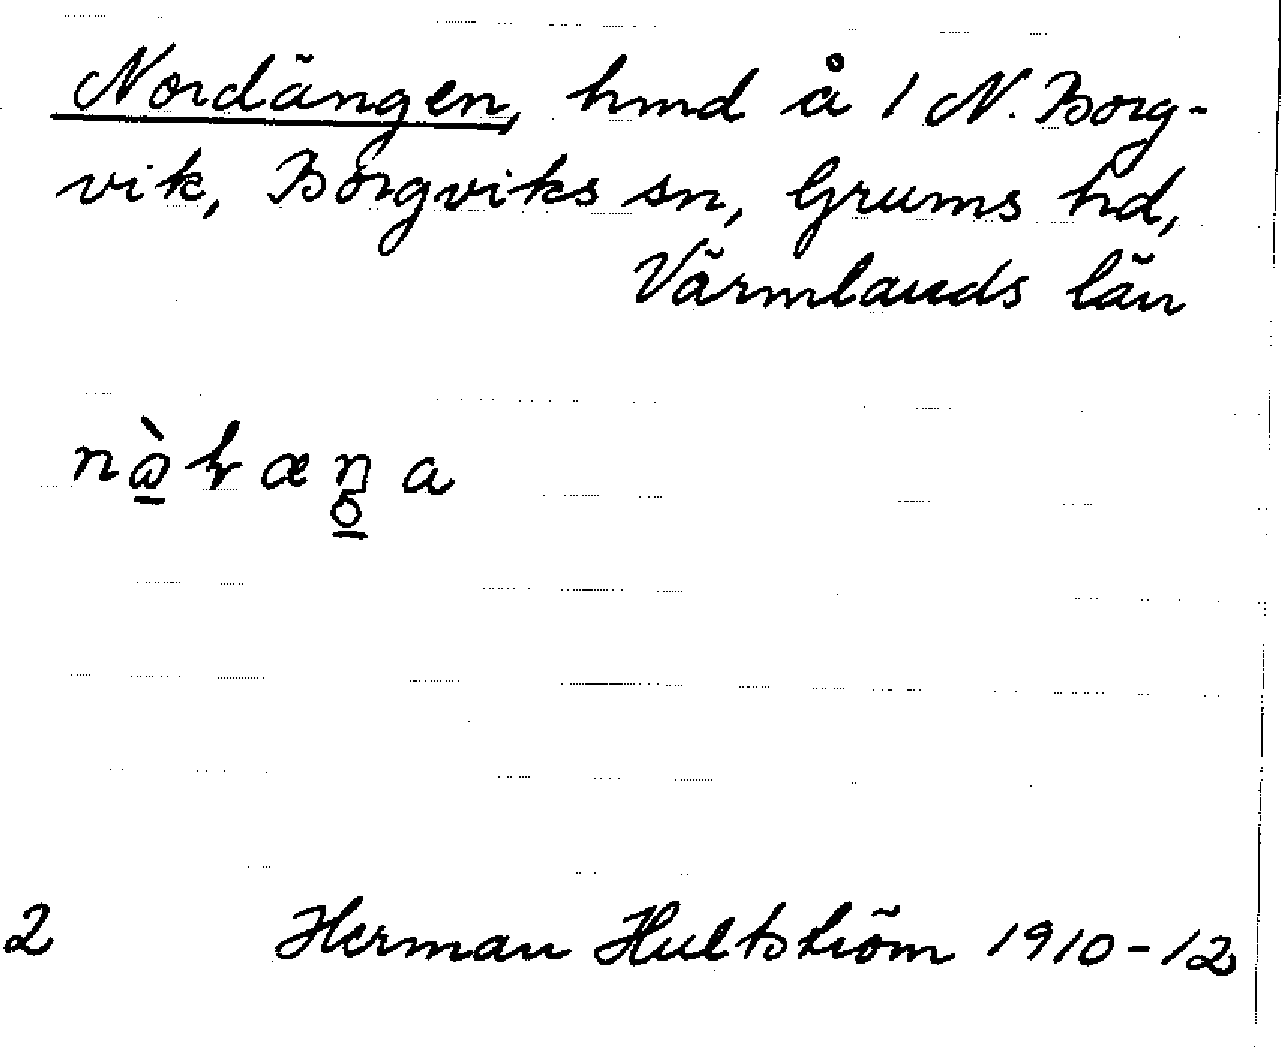 Nordängen, hmd å 1 N. Borg-
vik, Borgviks sn, Grums hd,
Värmlands län
2 Herman Hultström 1910-12